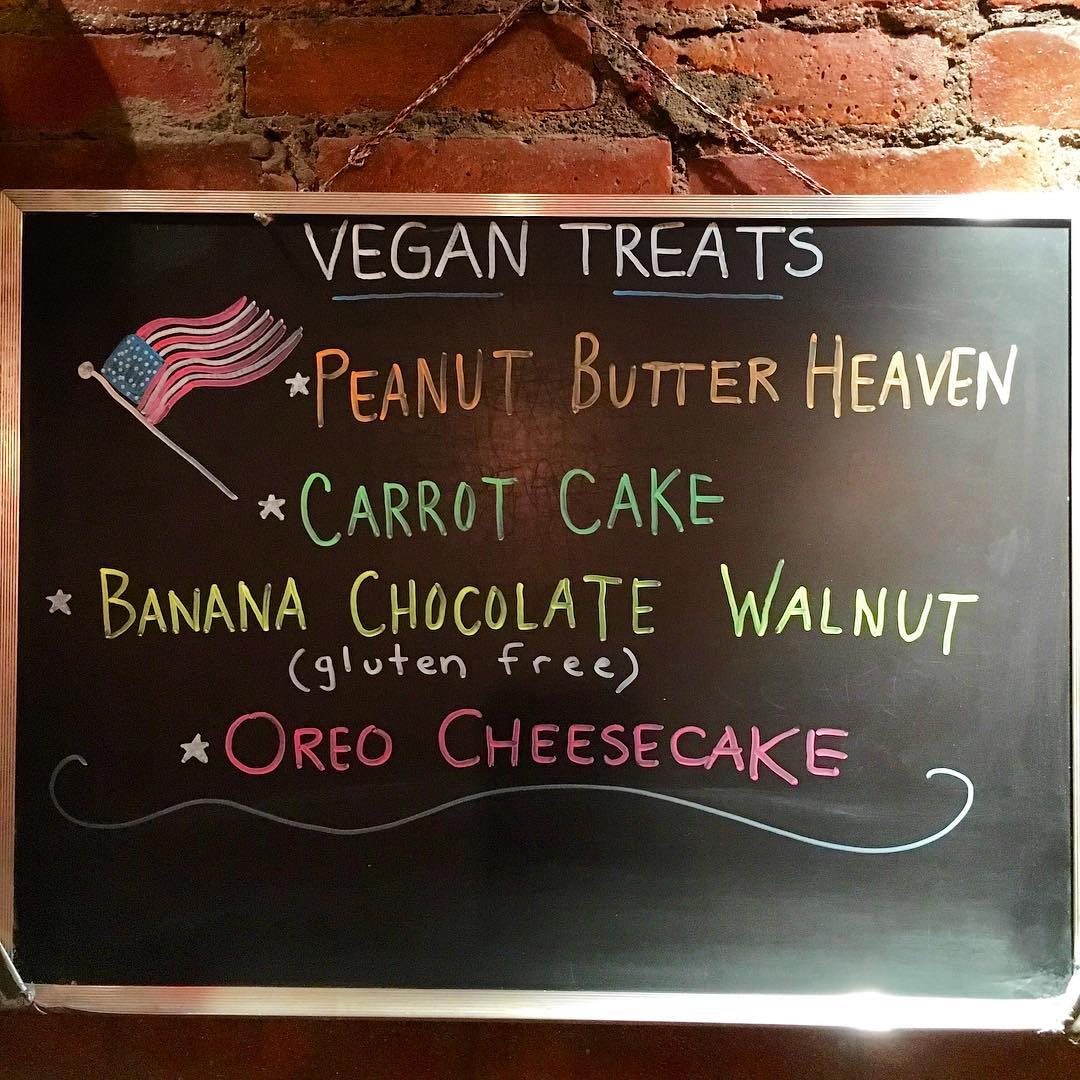 VEGAN TREATS
PEANUT BUTTER HEAVEN
CARROT CAKE
BANANA CHOCOLATE WALNUT
(gluten free)
OREO CHEESECAKE